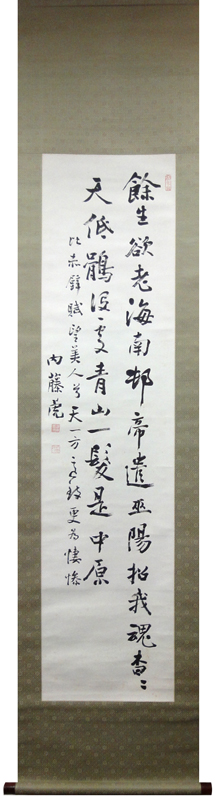 餘生欲老海南邨帝遣巫陽招我魂杳〻
天低鶻没處青山一髮是中原
比赤壁賦望美人兮天一方更為悽
内藤虎